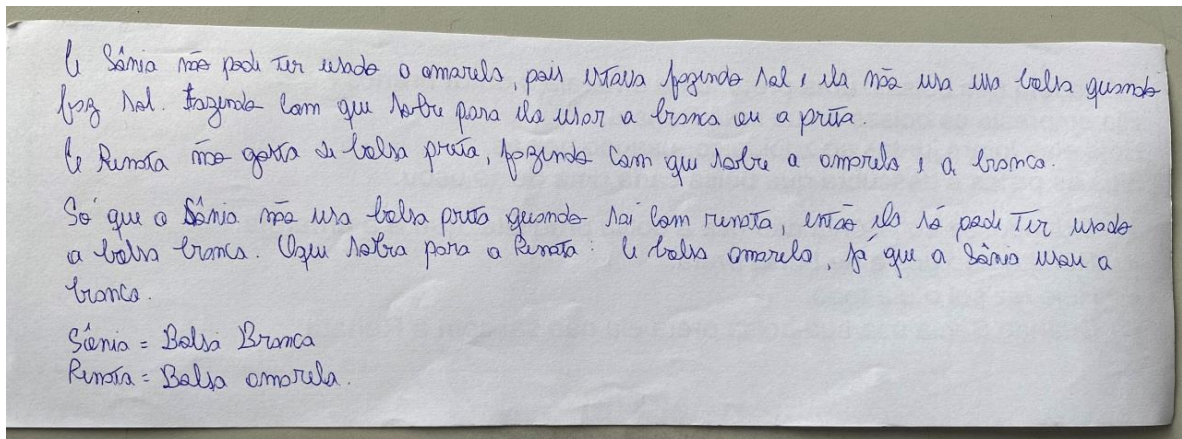 A Sânia não pode ter usado a amarela, pois estava fazendo sol e ela não usa essa bolsa quando
faz sol. Fazendo com que sobre para ela usar a branca ou a preta
A Renata não gosta de bolsa preta, fazendo com que sobre a amarela e a branca.
Só que a Sânia não usa bolsa preta quando sai com renata, então ela só pode Ter usado
a bolsa branca. O que sobra para a Renata: A bolsa amarela, já que a Sânia usou a
branca.
Sânia = Bolsa Branca
Renata = Bolsa amarela.